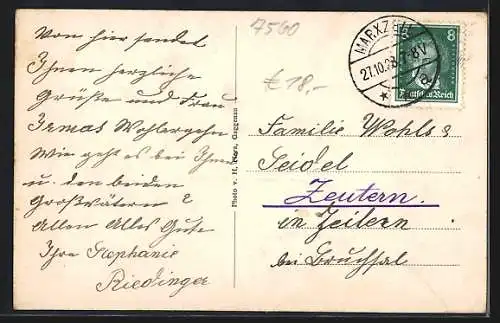 Von hier sendet
Ihnen herzliche
Grüße und Frau
Irmas Wohlergehn
Wie geht es bei Ihnen
u. den beiden
Großvätern?
Allen Alles Gute
Ihre Stephanie
Riedinger
Photo v. H. Gaggenau
7560
€18,-
MARXZELL
27.10.28. 8V
8
Deutsches Reich
Familie Wohls &
Seidel
Zeutern.
in Zeitern
bei Bruchsal